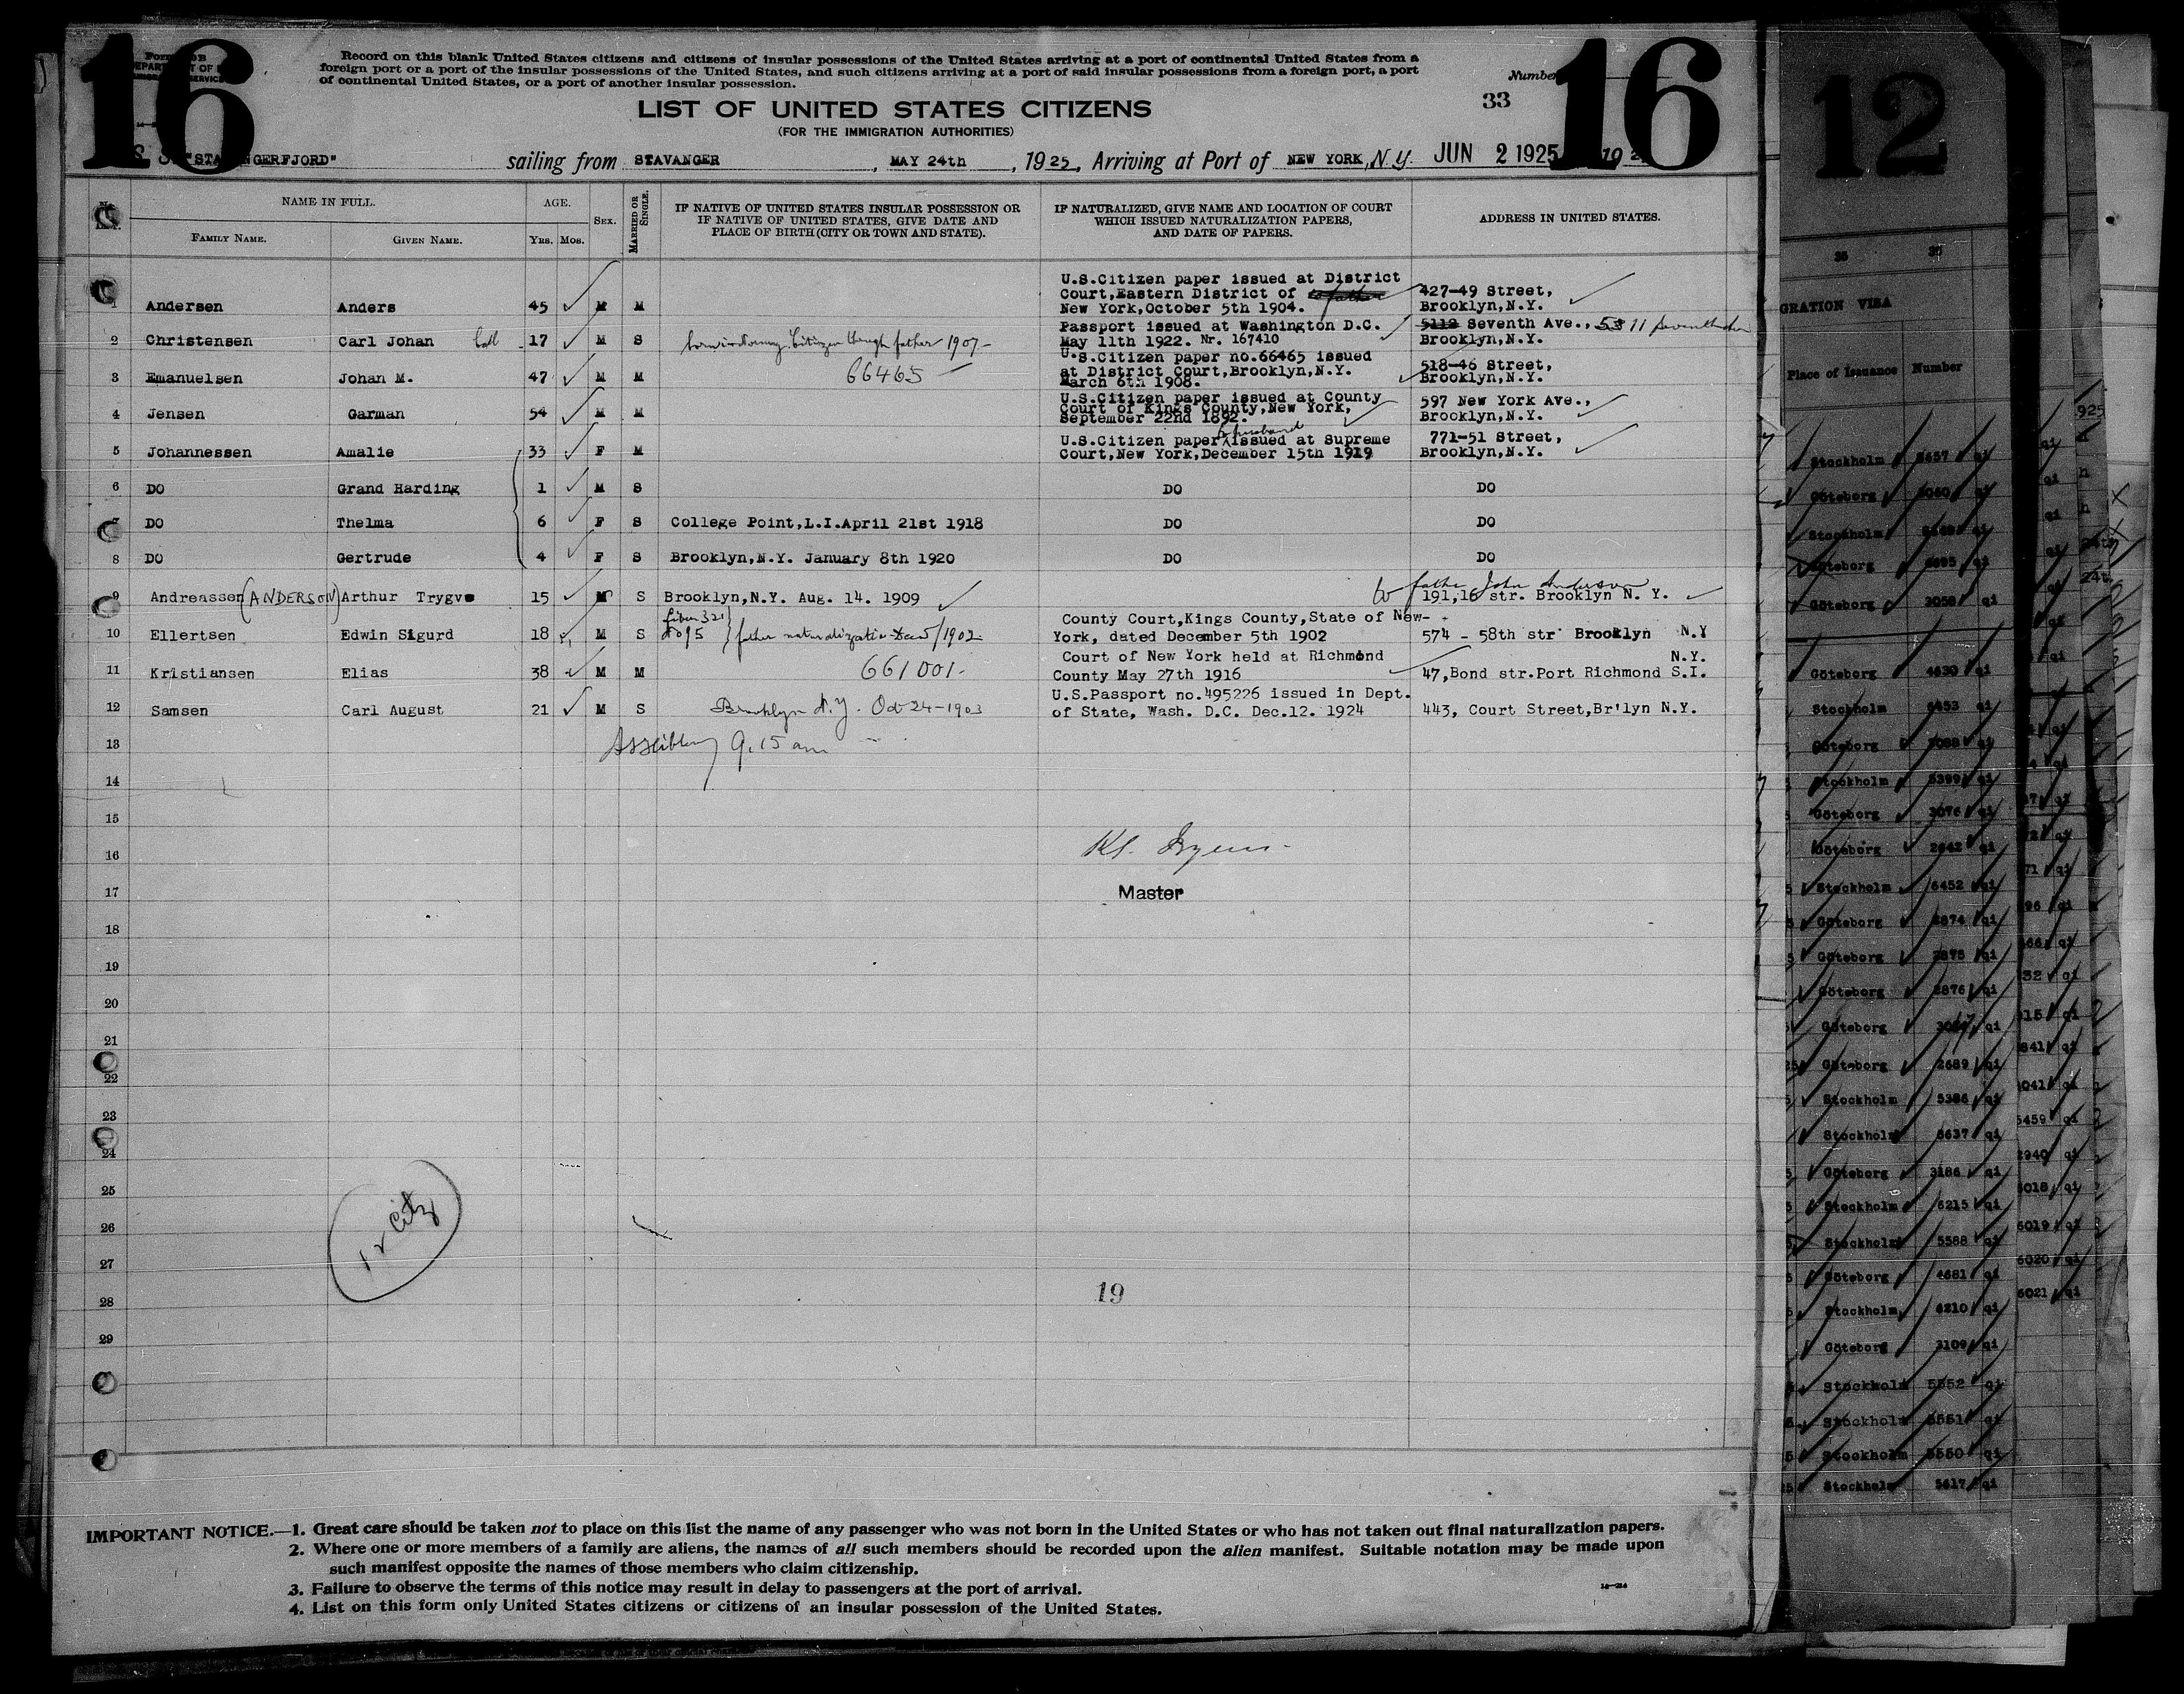 16
16
Record on this blank United States citizens and citizens of insular possessions of the United States arriving at a port of continental United States from a
foreign port or a port of the insular possessions of the United States, and such citizens arriving at a port of said insular possessions from a foreign port, a port
of continental United States, or a port of another insular possession.
Number
33
LIST OF UNITED STATES CITIZENS
(FOR THE IMMIGRATION AUTHORITIES)
"STAVANGERFJORD" sailing from STAVANGER, MAY 24th, 1925, Arriving at Port of NEW YORK, N.Y. JUN 2 1925
NAME IN FULL. AGE. SEX. MARRIED OR SINGLE. IF NATIVE OF UNITED STATES INSULAR POSSESSION OR ADDRESS IN UNITED STATES.
IF NATIVE OF UNITED STATES, GIVE DATE AND
PLACE OF BIRTH (CITY OR TOWN AND STATE).
IF NATURALIZED, GIVE NAME AND LOCATION OF COURT
WHICH ISSUED NATURALIZATION PAPERS,
AND DATE OF PAPERS.
FAMILY NAME. GIVEN NAME. YRS. MOS.
U.S.Citizen paper issued at District
Court,Eastern District of 427-49 Street,
1 Andersen Anders 45 M M New York,October 5th 1904. Brooklyn,N.Y.
Passport issued at Washington D.C. 5112 Seventh Ave., 5311 Seventh Ave
2 Christensen Carl Johan 17 M S born in Norway. Citizen through father 1907 May 11th 1922. Nr. 167410 Brooklyn,N.Y.
U.S.Citizen paper no.66465 issued
at District Court,Brooklyn,N.Y. 518-46 Street,
3 Emanuelsen Johan M. 47 M M 66465 March 6th 1908. Brooklyn,N.Y.
U.S.Citizen paper issued at County
Court of Kings County,New York, 597 New York Ave.,
4 Jensen Garman 54 M M September 22nd 1892. Brooklyn,N.Y.
husband
U.S.Citizen paper issued at Supreme 771-51 Street,
5 Johannessen Amalie 33 F M Court,New York,December 15th 1919 Brooklyn,N.Y.
6 DO Grand Harding 1 M S DO DO
7 DO Thelma 6 F S College Point,L.I.April 21st 1918 DO DO
8 DO Gertrude 4 F S Brooklyn,N.Y. January 8th 1920 DO DO
father John Anderson
9 Andreassen (ANDERSON) Arthur Trygve 15 M S Brooklyn,N.Y. Aug. 14. 1909 191,16 str. Brooklyn N. Y.
County Court,Kings County,State of New-
10 Ellertsen Edwin Sigurd 18 M S father naturalization 1902 York, dated December 5th 1902 574 - 58th str Brooklyn N.Y
Court of New York held at Richmond N.Y.
11 Kristiansen Elias 38 M M 661001 County May 27th 1916 47,Bond str.Port Richmond S.I.
U.S.Passport no.495226 issued in Dept.
12 Samsen Carl August 21 M S Brooklyn N.Y. Oct 24-1903 of State, Wash. D.C. Dec.12. 1924 443, Court Street,Br'lyn N.Y.
13 9.15 am
14
15
16
17 Master
18
19
20
21
22
23
24
25
26
27
28
29
19
IMPORTANT NOTICE.—1. Great care should be taken not to place on this list the name of any passenger who was not born in the United States or who has not taken out final naturalization papers.
2. Where one or more members of a family are aliens, the names of all such members should be recorded upon the alien manifest. Suitable notation may be made upon
such manifest opposite the names of those members who claim citizenship.
3. Failure to observe the terms of this notice may result in delay to passengers at the port of arrival.
4. List on this form only United States citizens or citizens of an insular possession of the United States.
12
35
GRATION VISA
Place of Issuance Number
Stockholm
Göteborg
Stockholm
Göteborg
Göteborg 3058 qi
Göteborg 4630 qi
Stockholm 6453 qi
Göteborg 3088 qi
Stockholm 5399 qi
Göteborg 3076 qi
Göteborg 2842 qi
Stockholm 6452 qi
Göteborg 2874 qi
Göteborg 2875 qi
Göteborg 2876 qi
Göteborg qi
Göteborg 2689 qi
Stockholm 5386 qi
Stockholm 5637 qi
Göteborg 3186 qi
Stockholm 6215 qi
Stockholm 5588 qi
Göteborg 4681 qi
Stockholm 6210 qi
Göteborg 3109 qi
Stockholm 5552 qi
Stockholm 5551 qi
Stockholm 5550 qi
Stockholm 5617 qi